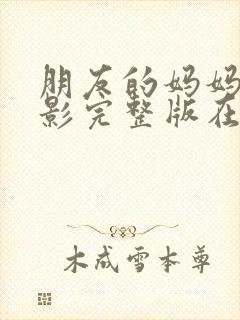 朋友的妈妈
影完整版在
木成雪本尊